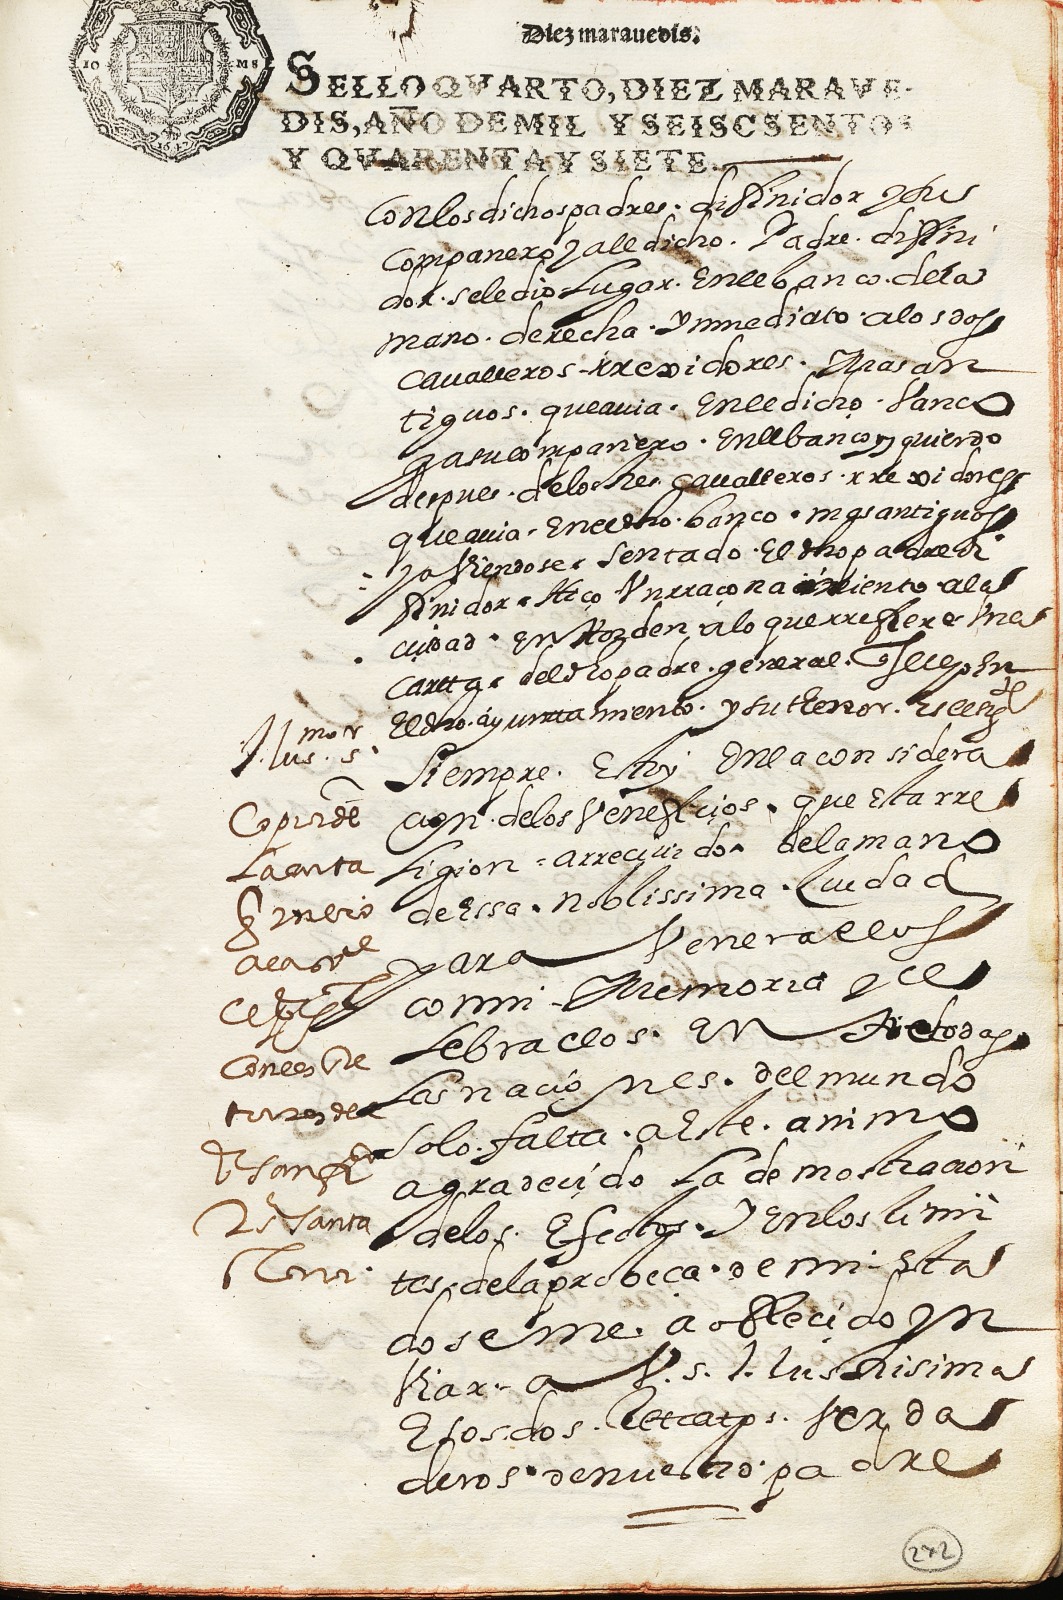 Diez marauedis.
SELLO QVARTO, DIEZ MARAVE-
DIS, AÑO DE MIL Y SEISCSENTOS
Y QVARENTA Y SIETE.
Con los dichos padres. difinidor y sus
companero y a el dicho. Padre. diffini
dor. se le dio Lugar. En el banco. de la
mano. derecha. ynmediato. a los dos
cavalleros rrexidores. Mas an
tiguos. que avia. En el dicho. vanco
y a su companero. En el banco yzquierdo
despues. de los tres cavalleros. rrexidores
que avia. En el dho. banco. mas antiguos
y aviendose. sentado. El dho padre di
finidor. Hiço Vn rraçonamiento a la
ciudad. En Rozden. a lo que rrefiere Vna
Cartta. del dho padre. general.
El dho. ayuntamiento. y su tenor. es el sigte
Illus. s mor
Siempre. Estoy En la considera
cion. de los Veneficios. que esta rre
Ligion arreciuido. de la mano
de Essa. noblissima. Ciudad
para Venerallos
con mi Memoria y ce
Lebrallos. En todas
Las naciones. del mundo
Solo. falta. a este. animo
agradecido La demostracion
de los. Efectos. Y En los limi
tes. de la pobreça. de mi Esta
do se me. a ofrecido yn
Viar. a V. s. Illustrisima
Esos. dos. Retratos. Verda
deros. de nuestro. padre
Copia de
La carta
Con los
de San
y Santa
242